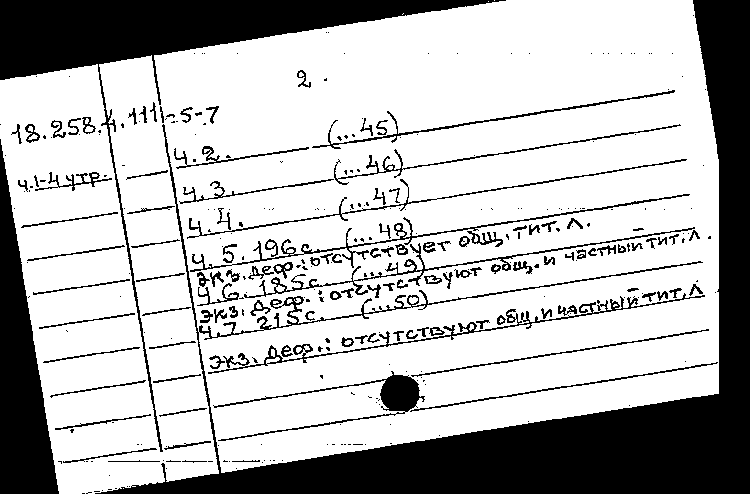 2.
18.258.4.111-5-7
ч.2. (...45)
ч.1-4 утр.
ч.3. (...46)
ч.4. (...47)
ч.5. 196 с. (...48)
экз. деф.: отсутствует общ. тит. л.
ч.6. 185 с. (...49)
экз. деф.: отсутствуют общ. и частный тит. л.
ч.7. 215 с. (...50)
экз. деф.: отсутствуют общ. и частный тит. л